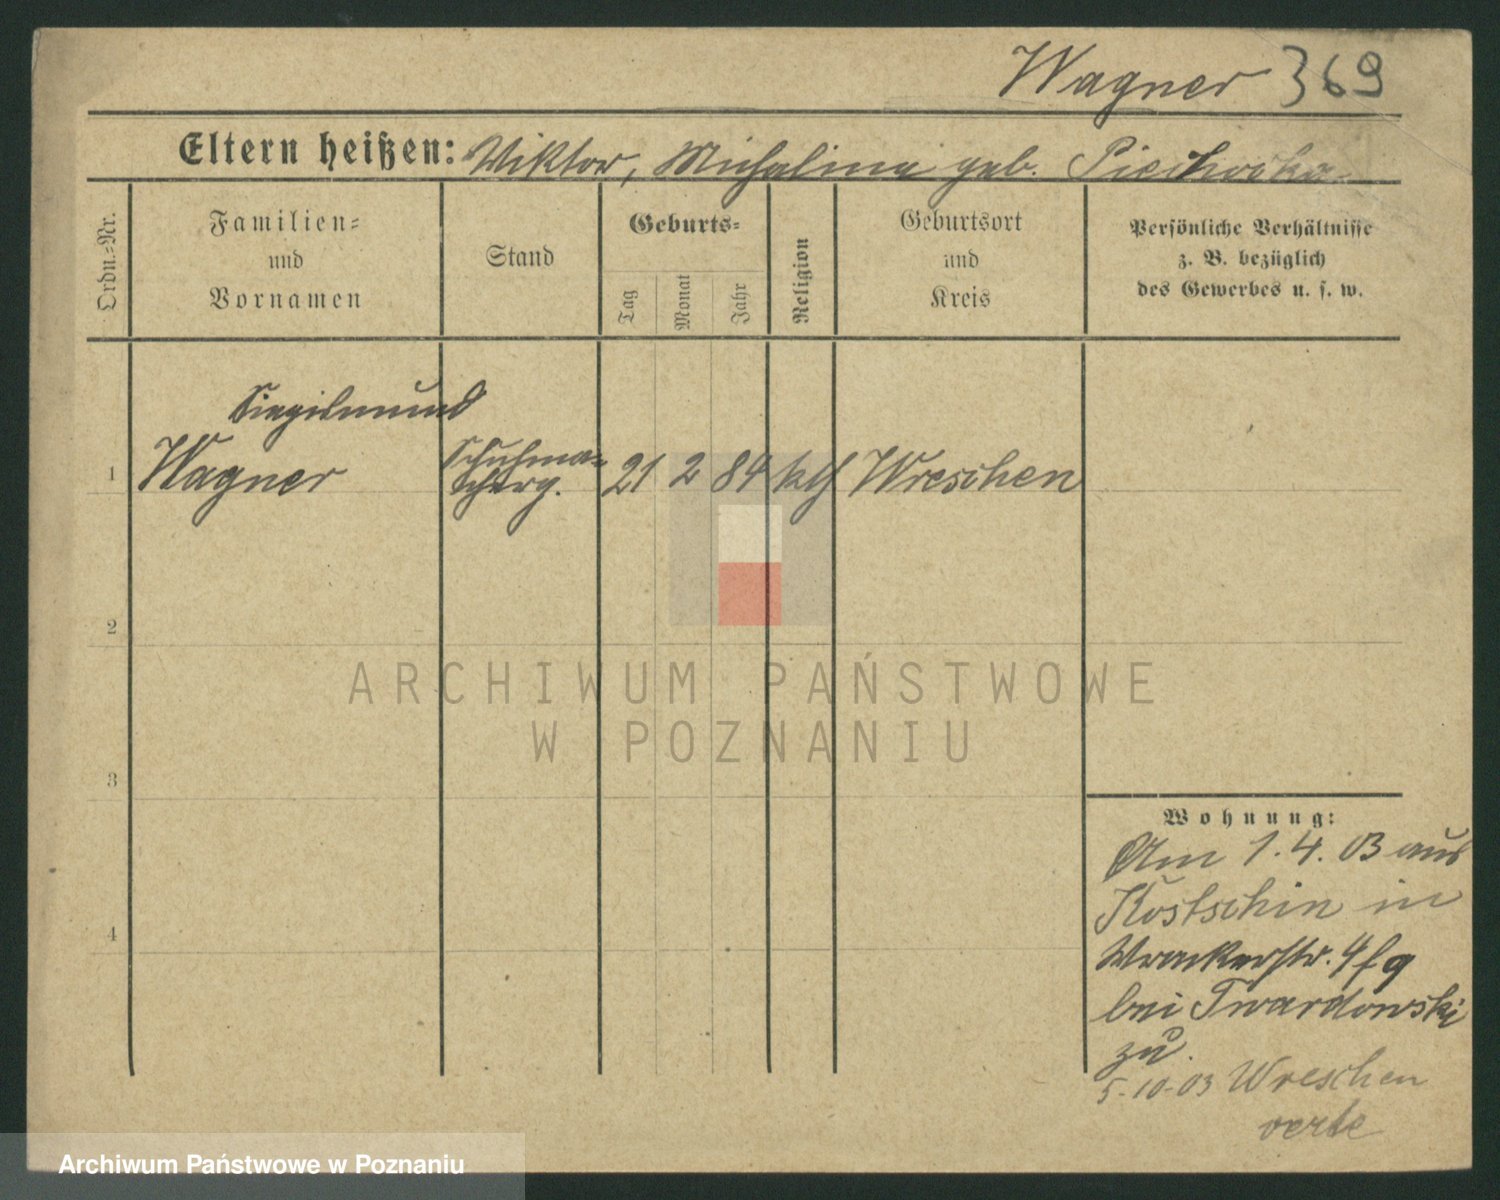 Wagner 369
Eltern heißen: Viktor, Michalina geb.
Ordn.-Nr.
Familien-
und
Vornamen
Stand
Geburts-
Tag
Monat
Jahr
Religion
Geburtsort
und
Kreis
Persönliche Verhältnisse
z. B. bezüglich
des Gewerbes u. s. w.
Siegismund
1 Wagner Schuhma-
cherg. 21 2 84 kth Wreschen
2
3
4
ARCHIWUM PAŃSTWOWE
W POZNANIU
Wohnung:
Am 1.4.03 aus
Kostschin in
bei Twardowski
zu.
5-10-03 Wreschen
verte
Archiwum Państwowe w Poznaniu